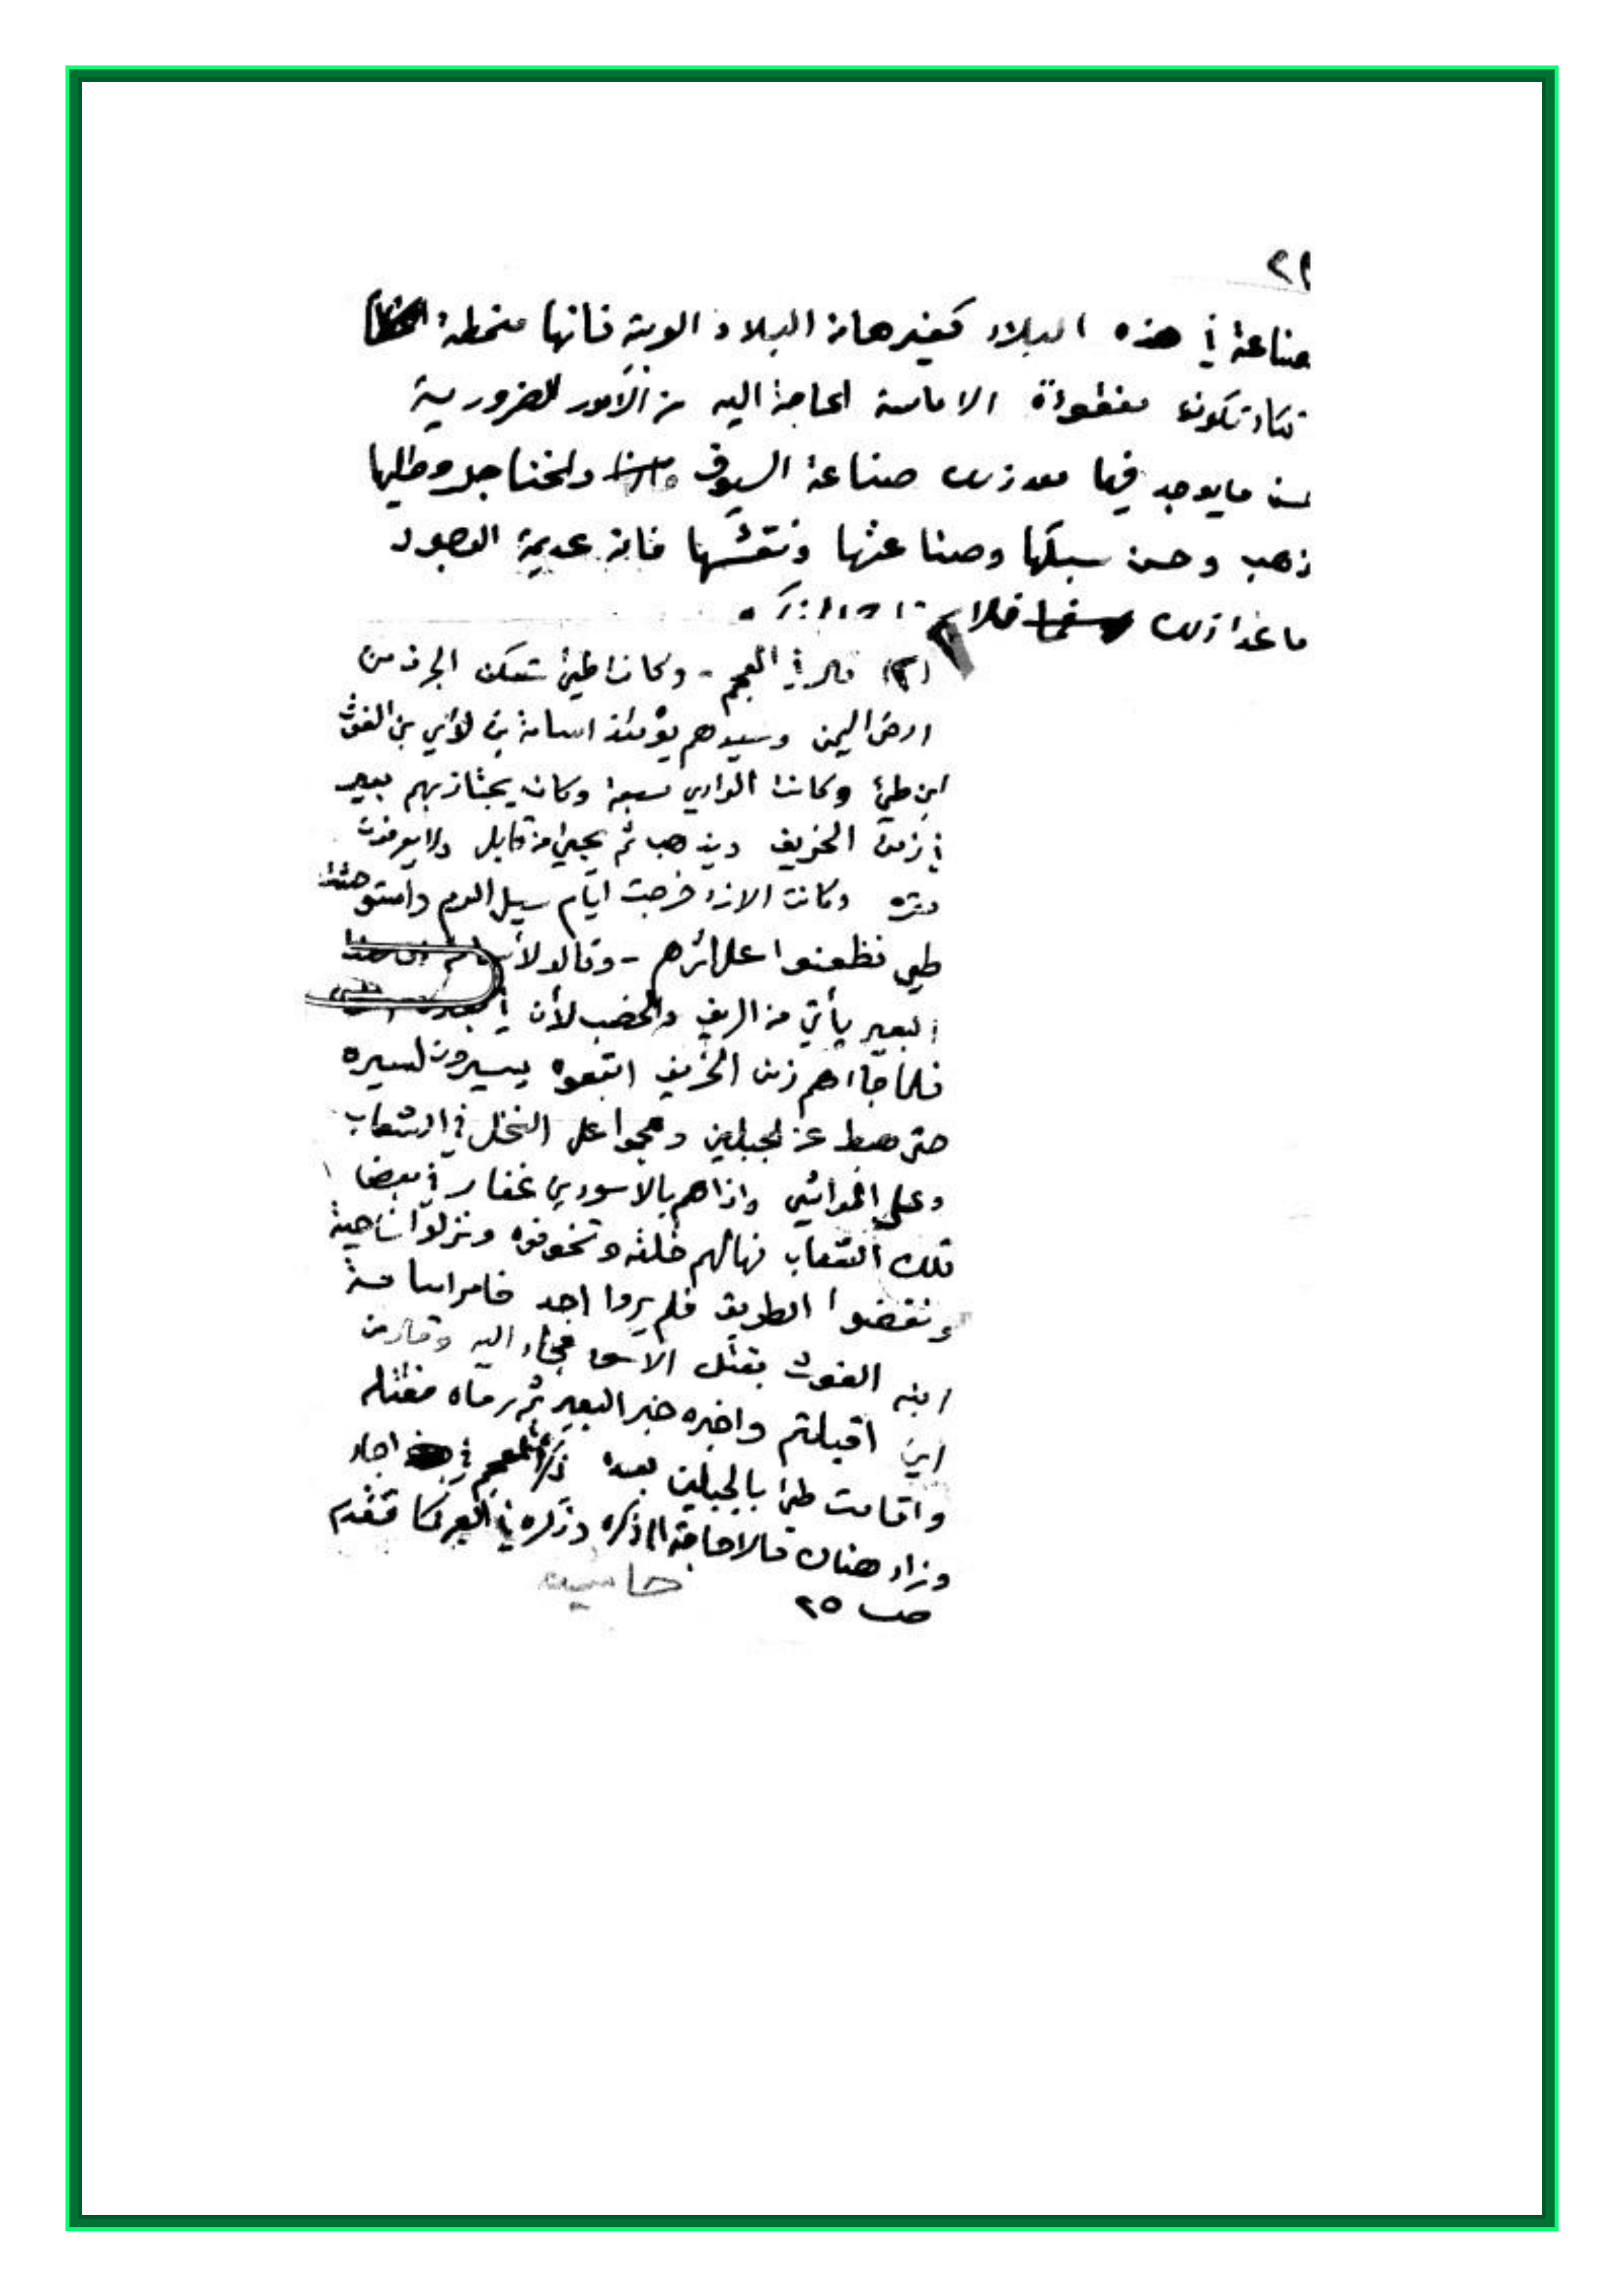 ٢١
صناعة في هذه البلاد كغيرها من البلاد العربية فانها منحطة
تكاد تكون مفقودة الا ما مست الحاجة اليه من الأمور الضرورية
ما يوجد فيها معدن صناعة السيوف والخناجر وطليها
ذهب وحسن سبكها وصناعتها ونقشها فانه عديمة
ما عدا ذلك فلا
(٢) قال في المعجم - وكانت طيئ تسكن الجرف من
ارض اليمن وسيدهم يومئذ اسامة بن لؤي بن الغوث
ابن طيئ وكانت الوادي مسبعة وكان يجتازبهم بعير
في زمن الخريف ويذهب ثم يجيئ من قابل ولا يعرفون
مقره وكانت الازد خرجت ايام سيل العرم واستوحشت
طي فظعنوا على اثرهم - وقالو لأسامة ان هذا
البعير يأتي من الريف والخصب لأن
فلما جاءهم زمن الخريف اتبعوه يسيرون لسيره
حتى هبط عن الجبلين وهجموا على النخل في الشعاب
وعلى المواشي واذا هم بالاسود بن غفار في بعض
تلك الشعاب فهالهم خلقه وتخوفوه ونزلوا ناحية
ونفضوا الطريق فلم يروا احد فامر اسامة
ابنه الغوث بقتل الاسود فجاء اليه وقال من
اين اقبلتم واخبره خبر البعير ثم رماه فقتله
واقامت طيئ بالجبلين بعده ذكره المعجم في اجاء
وزاد هناك مالا حاجة الى ذكره وذكره في كما تقدم
صـ ٢٥
حاشية